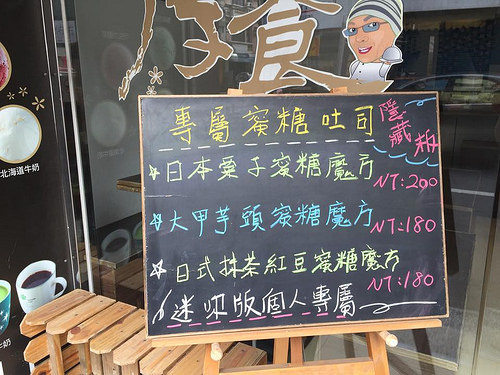 食
專屬蜜糖吐司
隱藏版
日本栗子蜜糖魔方
NT:200
大甲芋頭蜜糖魔方
NT:180
日式抹茶紅豆蜜糖魔方
NT:180
迷你版個人專屬
北海道牛奶